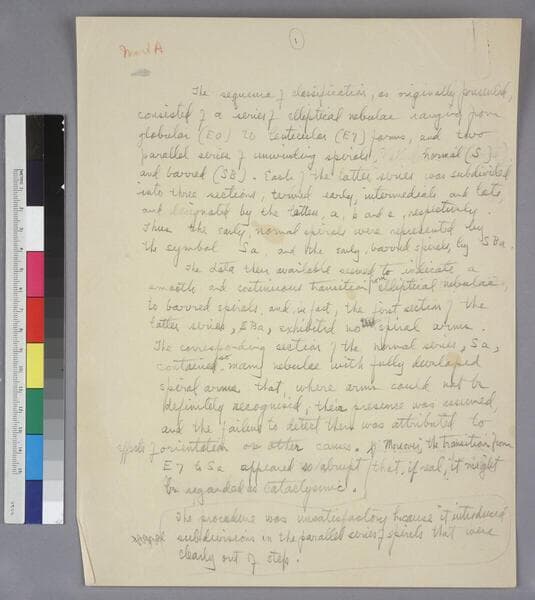 1
The sequence of classification, as originally presented,
consisted of a series of elliptical nebulae ranging from
globular (E0) to lenticular (E7) forms, and two
parallel series of unwinding spirals, normal (S)
and barred (SB). Each of the latter series was subdivided
into three sections, termed early, intermediate and late
and designated by the letters, a, b and c, respectively.
Thus the early, normal spirals were represented by
the symbol Sa, and the early, barred spirals, by SBa.
The data then available seemed to indicate a
smooth and continuous transition from elliptical nebulae,
to barred spirals, and, in fact, the first section of the
latter series, SBa, exhibited no spiral arms.
The corresponding section of the normal series, Sa,
contained so many nebulae with fully developed
spiral arms that, where arms could not be
definitely recognised, their presence was assumed,
and the failure to detect them was attributed to
effects of orientation or other causes. Moreover, the transition from
E7 to Sa appeared so abrupt that, if real, it might
be regarded as cataclysmic.
The procedure was unsatisfactory because it introduced
subdivisions in the parallel series of spirals that were
clearly out of step.